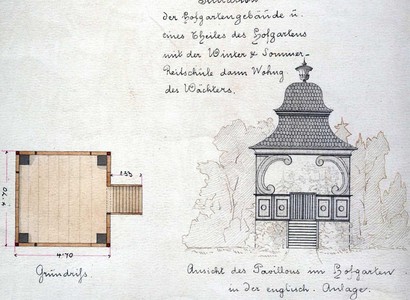 Situation
der Hofgartengebäude u.
eines Theiles des Hofgartens
mit der Winter & Sommer-
Reitschule dann Wohng
des Wächters.
1.55
4.70
4.70
Grundriss
Ansicht des Pavillons im Hofgarten
in der englisch. Anlage.